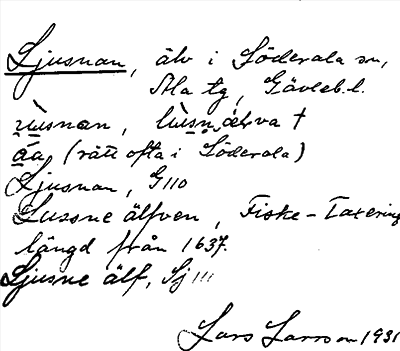 Ljusnan, älv i Söderala sn,
Ala tg, Gävleb.l.
lùsnan, lùsn ælva †
åa (rätt ofta i Söderala)
Ljusnan, G110
Lussne älfven, Fiske-Taxering
längd från 1637.
Ljusne älf, Sj111
Lars Larsson 1931